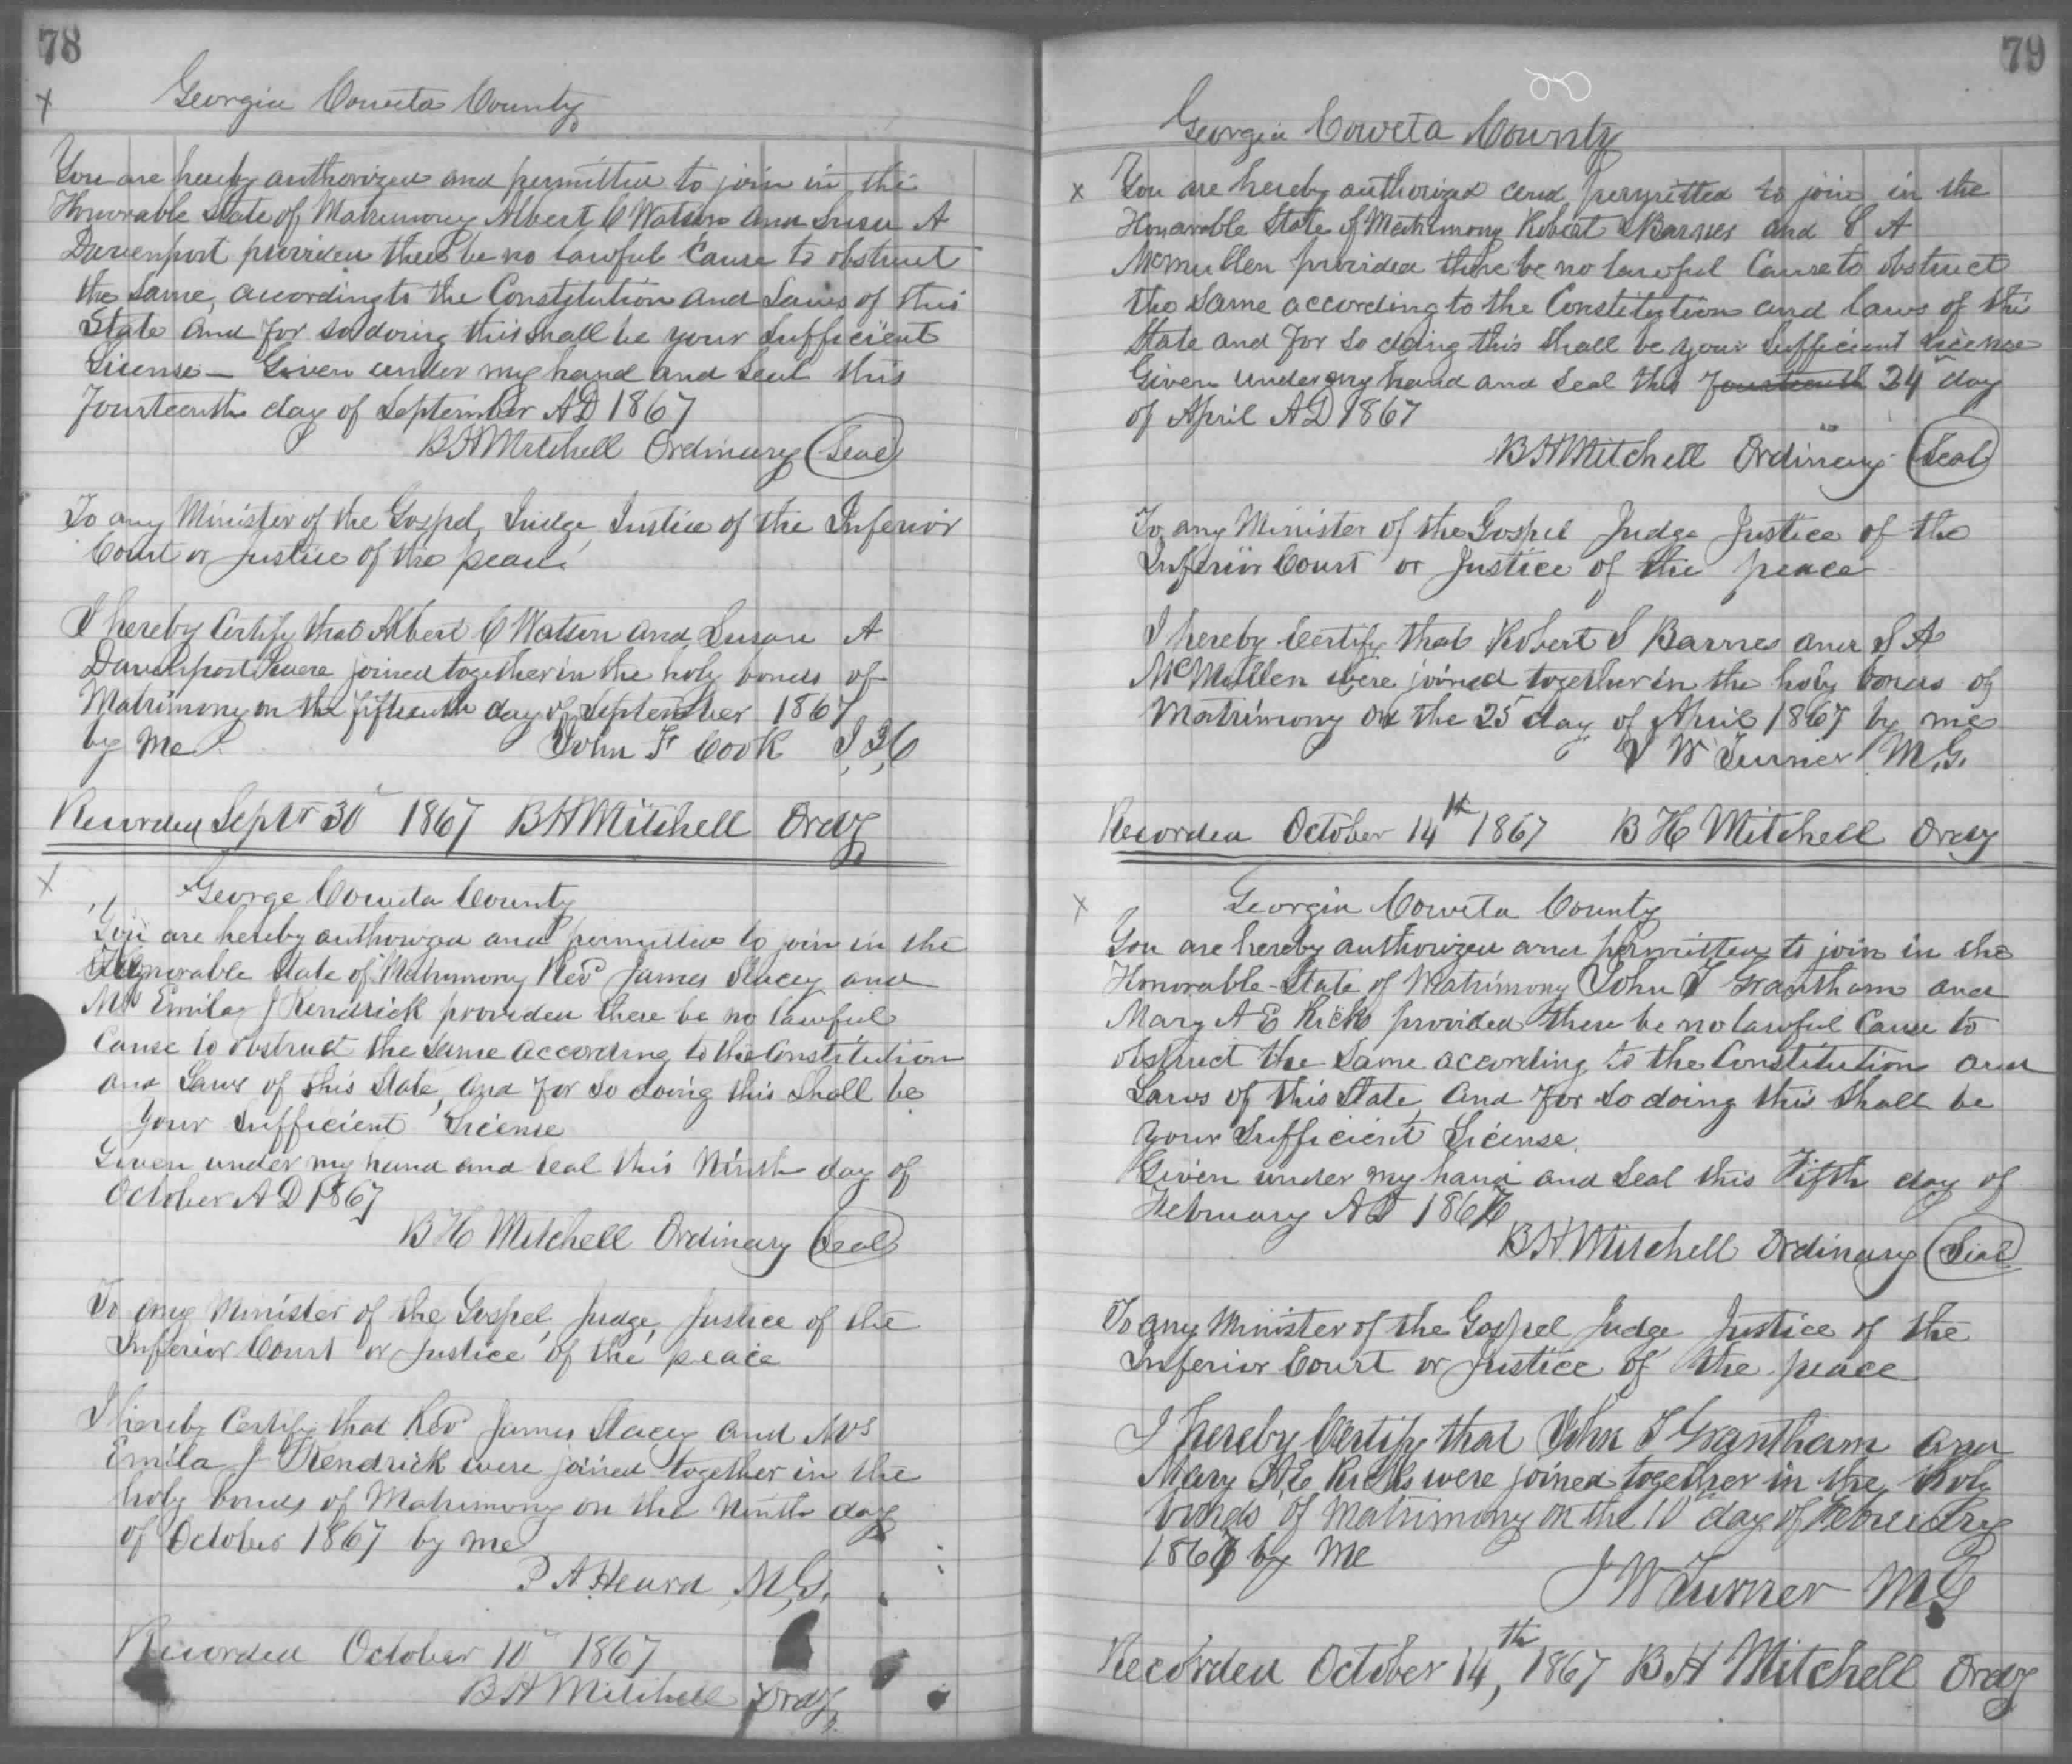 78
Georgia Coweta County
You are hereby authorized and permitted to join in the
Honorable State of Matrimony Albert C Watson and Susan A
Davenport provided there be no lawful Cause to obstruct
the Same, according to the Constitution and Laws of this
State and for so doing this shall be your Sufficient
License — Given under my hand and Seal this
Fourteenth day of September AD 1867
B H Mitchell Ordinary (Seal)
To any Minister of the Gospel, Judge, Justice of the Inferior
Court or Justice of the peace
I hereby Certify that Albert C Watson and Susan A
Davenport were joined together in the holy bonds of
Matrimony on the fifteenth day of September 1867
by Me John F Cook J, I, C
Recorded Septr 30 1867 B H Mitchell Ordy
George Coweta County
You are hereby authorized and permitted to join in the
Honorable State of Matrimony Revd James Stacey and
Mrs Emila J Kendrick provided there be no lawful
Cause to obstruct the same according to the Constitution
and Laws of this State, and for so doing this shall be
your Sufficient License
Given under my hand and Seal this Ninth day of
October A D 1867
B H Mitchell Ordinary (Seal)
To any Minister of the Gospel, Judge, Justice of the
Inferior Court or Justice of the peace
I hereby Certify that Revd James Stacey and Mrs
Emila J Kendrick were joined together in the
holy bonds of Matrimony on the Ninth day
of October 1867 by me
P A Heard, M, G,
Recorded October 10 1867
B H Mitchell Ordy
79
Georgia Coweta County
You are hereby authorized and permitted to join in the
Honorable State of Matrimony Robert S Barnes and S A
McMullen provided there be no lawful Cause to obstruct
the same according to the Constitution and laws of this
State and for so doing this Shall be your Sufficient License
Given under my hand and Seal this Fourteenth 24" day
of April AD 1867
B H Mitchell Ordinary (Seal)
To any Minister of the Gospel Judge Justice of the
Inferior Court or Justice of the peace
I hereby Certify that Robert S Barnes and S A
McMullen were joined together in the holy bonds of
Matrimony on the 25 day of April 1867 by me
J W Turner M.G.
Recorded October 14th 1867 B H Mitchell Ordy
Georgia Coweta County
You are hereby authorized and permitted to join in the
Honorable State of Matrimony John T Grantham and
Mary A E Ricks provided there be no lawful Cause to
obstruct the Same according to the Constitution and
Laws of this State, and for so doing this Shall be
your Sufficient License.
Given under my hand and Seal this Fifth day of
February AD 1867
B H Mitchell Ordinary (Seal)
To any Minister of the Gospel Judge Justice of the
Inferior Court or Justice of the peace
I hereby Certify that John T Grantham and
Mary A E Ricks were joined together in the holy
bonds of Matrimony on the 10 day of February
1867 by Me
J W Turner M G
Recorded October 14th, 1867 B H Mitchell Ordy